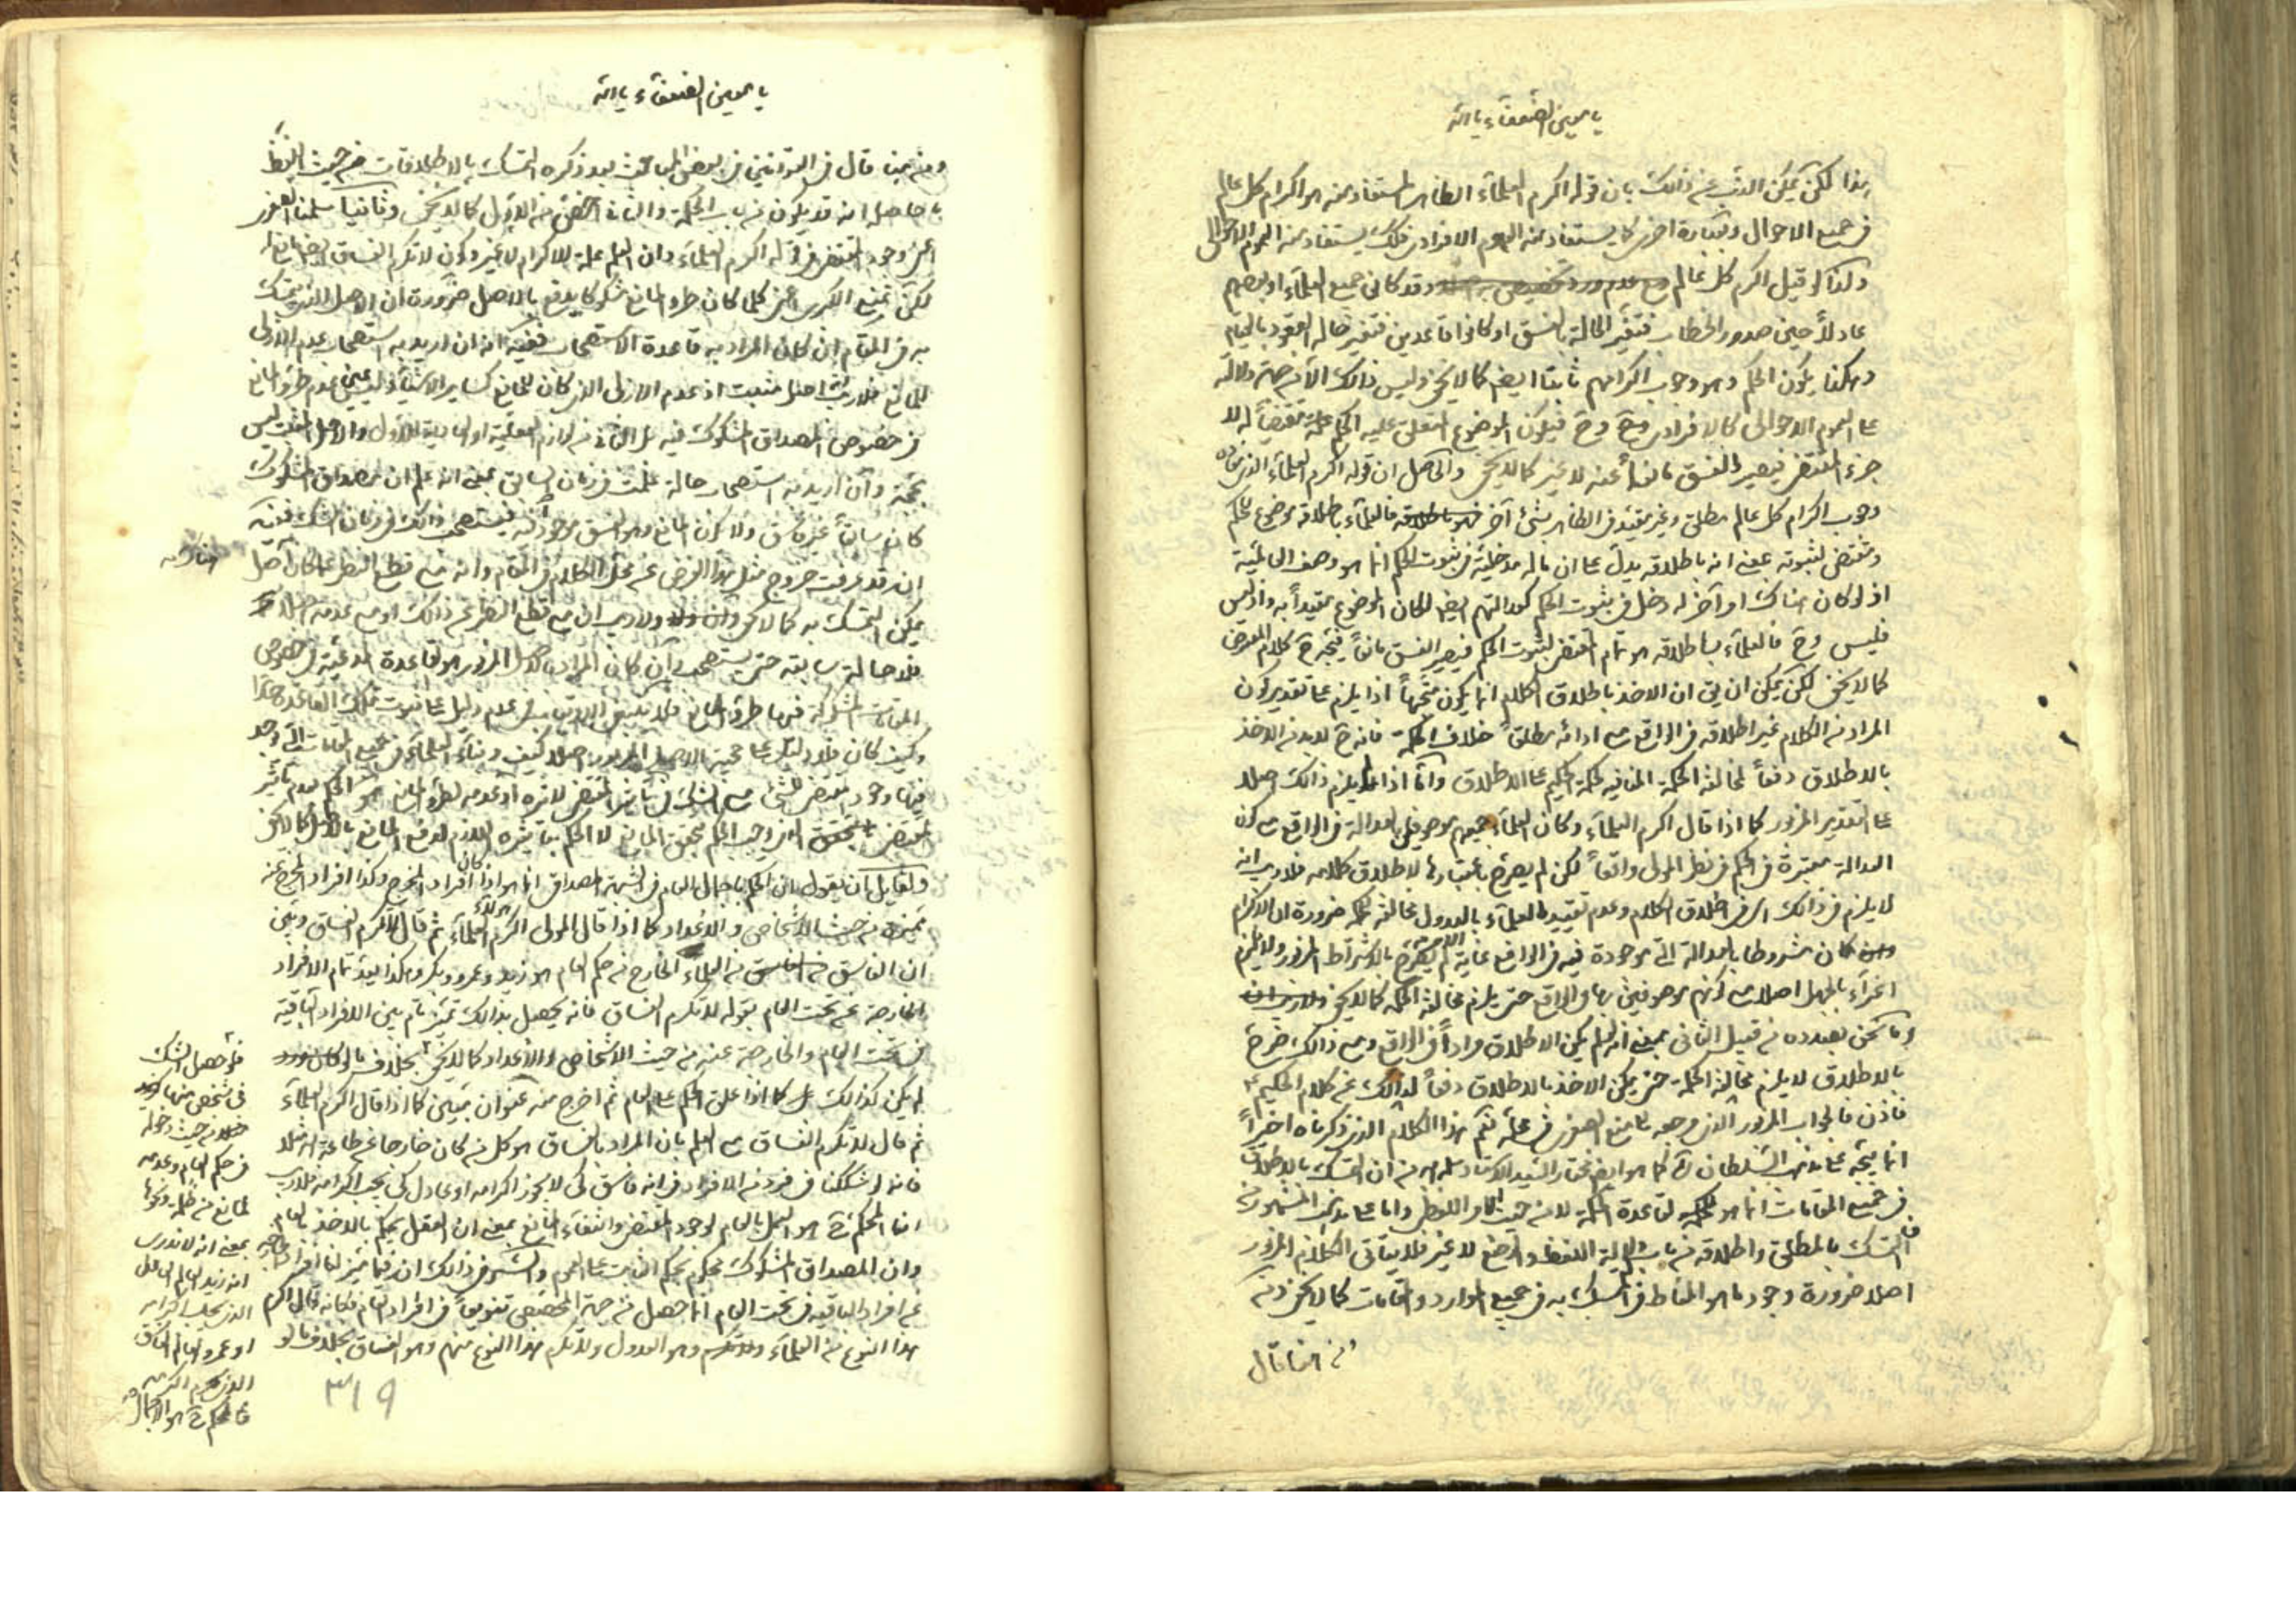 يا معين الضعفاء يا الله
هذا لكن يمكن الذب عن ذلك بان قوله اكرم العلماء الظاهر المستفاد منه هو اكرام كل عالم
في جميع الاحوال وبعبارة اخرى كما يستفاد منه العموم الافرادى كذلك يستفاد منه العموم الاحوالى
وكذا لو قيل اكرم كل عالم وقد كانى جميع العلماء او بعضهم
عادلاً حين صدور الخطاب فتغير الحالة بالفسق او كانوا قاعدين فتغير حالة القعود بالقيام
وهكذا يكون الحكم وهو وجوب اكرامهم ثابتا ايضا كما لا يخفى وليس ذلك الا من جهة دلالته
على العموم الاحوالى كالافرادى وح فيكون الموضوع المعلق عليه الحكم علة مقتضياً له لا
جزء المقتضى فيصير الفسق مانعاً عنه لا غير كما لا يخفى والحاصل ان قوله اكرم العلماء الذى
وجوب اكرام كل عالم مطلق وغير مقيد في الظاهر بشئ آخر فالعلماء باطلاقه موضوع للحكم
ومقتضى لثبوته يعنى انه باطلاقه يدل على ان ما له مدخلية في ثبوت الحكم انما هو وصف العالمية
اذ لو كان هناك امر آخر له دخل في ثبوت الحكم كعدالتهم ايضا لكان الموضوع مقيداً به واذ ليس
فليس وح فالعلماء باطلاقه هو تمام المقتضى لثبوت الحكم فيصير الفسق مانعاً فيتجه ح كلام المعترض
كما لا يخفى لكن يمكن ان يق ان الاخذ باطلاق الكلام انما يكون متجهاً اذا يلزم على تقدير كون
المراد من الكلام غير اطلاقه في الواقع مع ادائه مطلقاً خلاف الحكمة فانه ح لا بد من الاخذ
بالاطلاق دفعاً لمخالفة الحكمة المنافية لحكمة الحكيم على الاطلاق واما اذا لم يلزم ذلك اصلا
على التقدير المزبور كما اذا قال اكرم العلماء وكان العلماء جميعهم موصوفين بالعدالة في الواقع مع كون
العدالة معتبرة في الحكم في نظر المولى واقعاً لكن لم يصرح باعتبارها لاطلاق كلامه فلا ريب انه
لا يلزم في ذلك اى في اطلاق الكلام وعدم تقييد العلماء بالعدول مخالفة حكمة ضرورة ان الاكرام
كان مشروطا بالعدالة التى موجودة فيه في الواقع غاية الامر لم يصرح بالاشتراط المزبور ولا يلزم
اغراء بالجهل اصلا مع كونهم موصوفين بها في الواقع حتى يلزم مخالفة الحكمة كما لا يخفى
وما نحن بصدده من قبيل الثانى بمعنى انه لو لم يكن الاطلاق مراداً في الواقع ومع ذلك اخرج
بالاطلاق لا يلزم مخالفة الحكمة حتى يمكن الاخذ بالاطلاق دفعاً لذلك عن كلام الحكيم
فاذن فالجواب المزبور الذى مرجعه الى منع الصغرى في محله نعم هذا الكلام الذى ذكرناه اخيراً
انما يتجه على مذهب السلطان ره كما هو ايضا مختار السيد الاستاد سلمه من ان التمسك بالاطلاق
في جميع المقامات انما هو لقاعدة الحكمة لا من حيث اللفظ واما على مذهب المشهور من
التمسك بالمطلق واطلاقه من باب دلالة اللفظ والوضع لا غير فلا يتأتى الكلام المزبور
اصلا ضرورة وجود ما هو المناط في التمسك به في جميع الموارد والمقامات كما لا يخفى
من هنا قال
يا معين الضعفاء يا الله
ومن هنا قال في القوانين في بعض المباحث بعد ذكره التمسك بالاطلاقات من حيث اللفظ
ما حاصله انه قد يكون من باب الحكمة والثانى اخص من الاول كما لا يخفى وثانيا سلمنا الصغرى
اعنى وجود المقتضى في قوله اكرم العلماء وان العلم علة للاكرام لا غير وكون لا تكرم الفساق ايضا مانعا له
لكن نمنع الكبرى اعنى كلما كان طرو المانع مشكوكا يدفع بالاصل ضرورة ان الاصل الذى يتمسك
به في المقام ان كان المراد به قاعدة الاستصحاب ففيه انه ان اريد به استصحاب عدم الازلى
للمانع فلا ريب انه اصل مثبت اذ عدم الازلى الذى كان للمانع كسائر الاشياء ليس عين عدم طرو المانع
في خصوص المصداق المشكوك فيه بل الثانى من لوازم العقلية او العادية للاول والاصل المثبت ليس
بحجة وان اريد منه استصحاب حالة علمت في زمان السابق بمعنى انه علم ان المصداق المشكوك
كان سابقاً غير فاسق ولا كون المانع وهو الفسق موجود فيه فيستصحب ذلك في زمان الشك ففيه
انه قد عرفت خروج مثل هذا الفرض عن محل الكلام في المقام وانه مع قطع النظر عما كان اصل
يمكن التمسك به كما لا يخفى ولا ريب ان مع قطع النظر عن ذلك او مع عدمه
فلا حالة سابقة حتى يستصحب وان كان المراد بالاصل المزبور هو القاعدة المدعية في خصوص
المقامات المشكوكة فيها طرو المانع عدم دليل على ثبوت تلك القاعدة
وكيف كان فلا دليل على حجية الاصل المزبور اصلا كيف وبناء العلماء في جميع المقامات التى وجد
فيها وجود المقتضى للشئ مع الشك في تأثير المقتضى لاثره او عدمه لطرو المانع هو الحكم بعدم تأثير
المقتضى الى وجب الحكم بتحقق المانع لا الحكم بتأثيره اللازم لدفع المانع بالاصل كما لا يخفى
ولقائل ان يقول ان الحكم باجمال العام في الشبهة المصداق انما هو اذا كان افراد المخرج وكذا افراد المخرج عنه
متميزة من حيث الاشخاص والاعداد كما اذا قال المولى اكرم هؤلاء العلماء ثم قال لا تكرم الفساق وتبين
ان الفاسق من العلماء الخارج من حكم العام هو زيد وعمرو وبكر وهكذا يعد تمام الافراد
الخارجة عن تحت العام بقوله لا تكرم الفساق فانه يحصل بذلك تميز تام بين الافراد الباقية
في تحت العام والخارجة عنه من حيث الاشخاص والاعداد كما لا يخفى بخلاف ما لو كان
لم يكن كذلك بل كما اذا علق الحكم على العام ثم اخرج منه عنوان معين كما اذا قال اكرم العلماء
ثم قال لا تكرم الفساق مع العلم بان المراد بالفساق هو كل من كان خارجا عن طاعة الله مثلا
فانه لو شككنا في فرد من الافراد في انه فاسق كى لا يجوز اكرامه او عادل كى يجب اكرامه فلا ريب
ان المحكم ح هو العمل بالعام لوجود المقتضى وانتفاء المانع بمعنى ان العقل يحكم بالاخذ بالعام
وان المصداق المشكوك محكوم بحكم الثابت على العموم والسر في ذلك ان تميز لنا افراد
عن افراد الباقية في تحت العام انما حصل من جهة المخصص تنويعاً في افراد العام فكانه قال اكرم
هذا النوع من العلماء وهو العدول ولا تكرم هذا النوع منهم وهو الفساق بخلاف ما لو
فلو حصل الشك
في شخص منها
من حيث دخوله
في حكم العام وعدمه
لمانع من ظلمة ونحوها
بمعنى انه لا ندرى
انه زيد العالم العادل
الذى يجب اكرامه
او عمرو العالم الفاسق
الذى يحرم اكرامه
فالحكم ح هو الاجمال
٣١٩